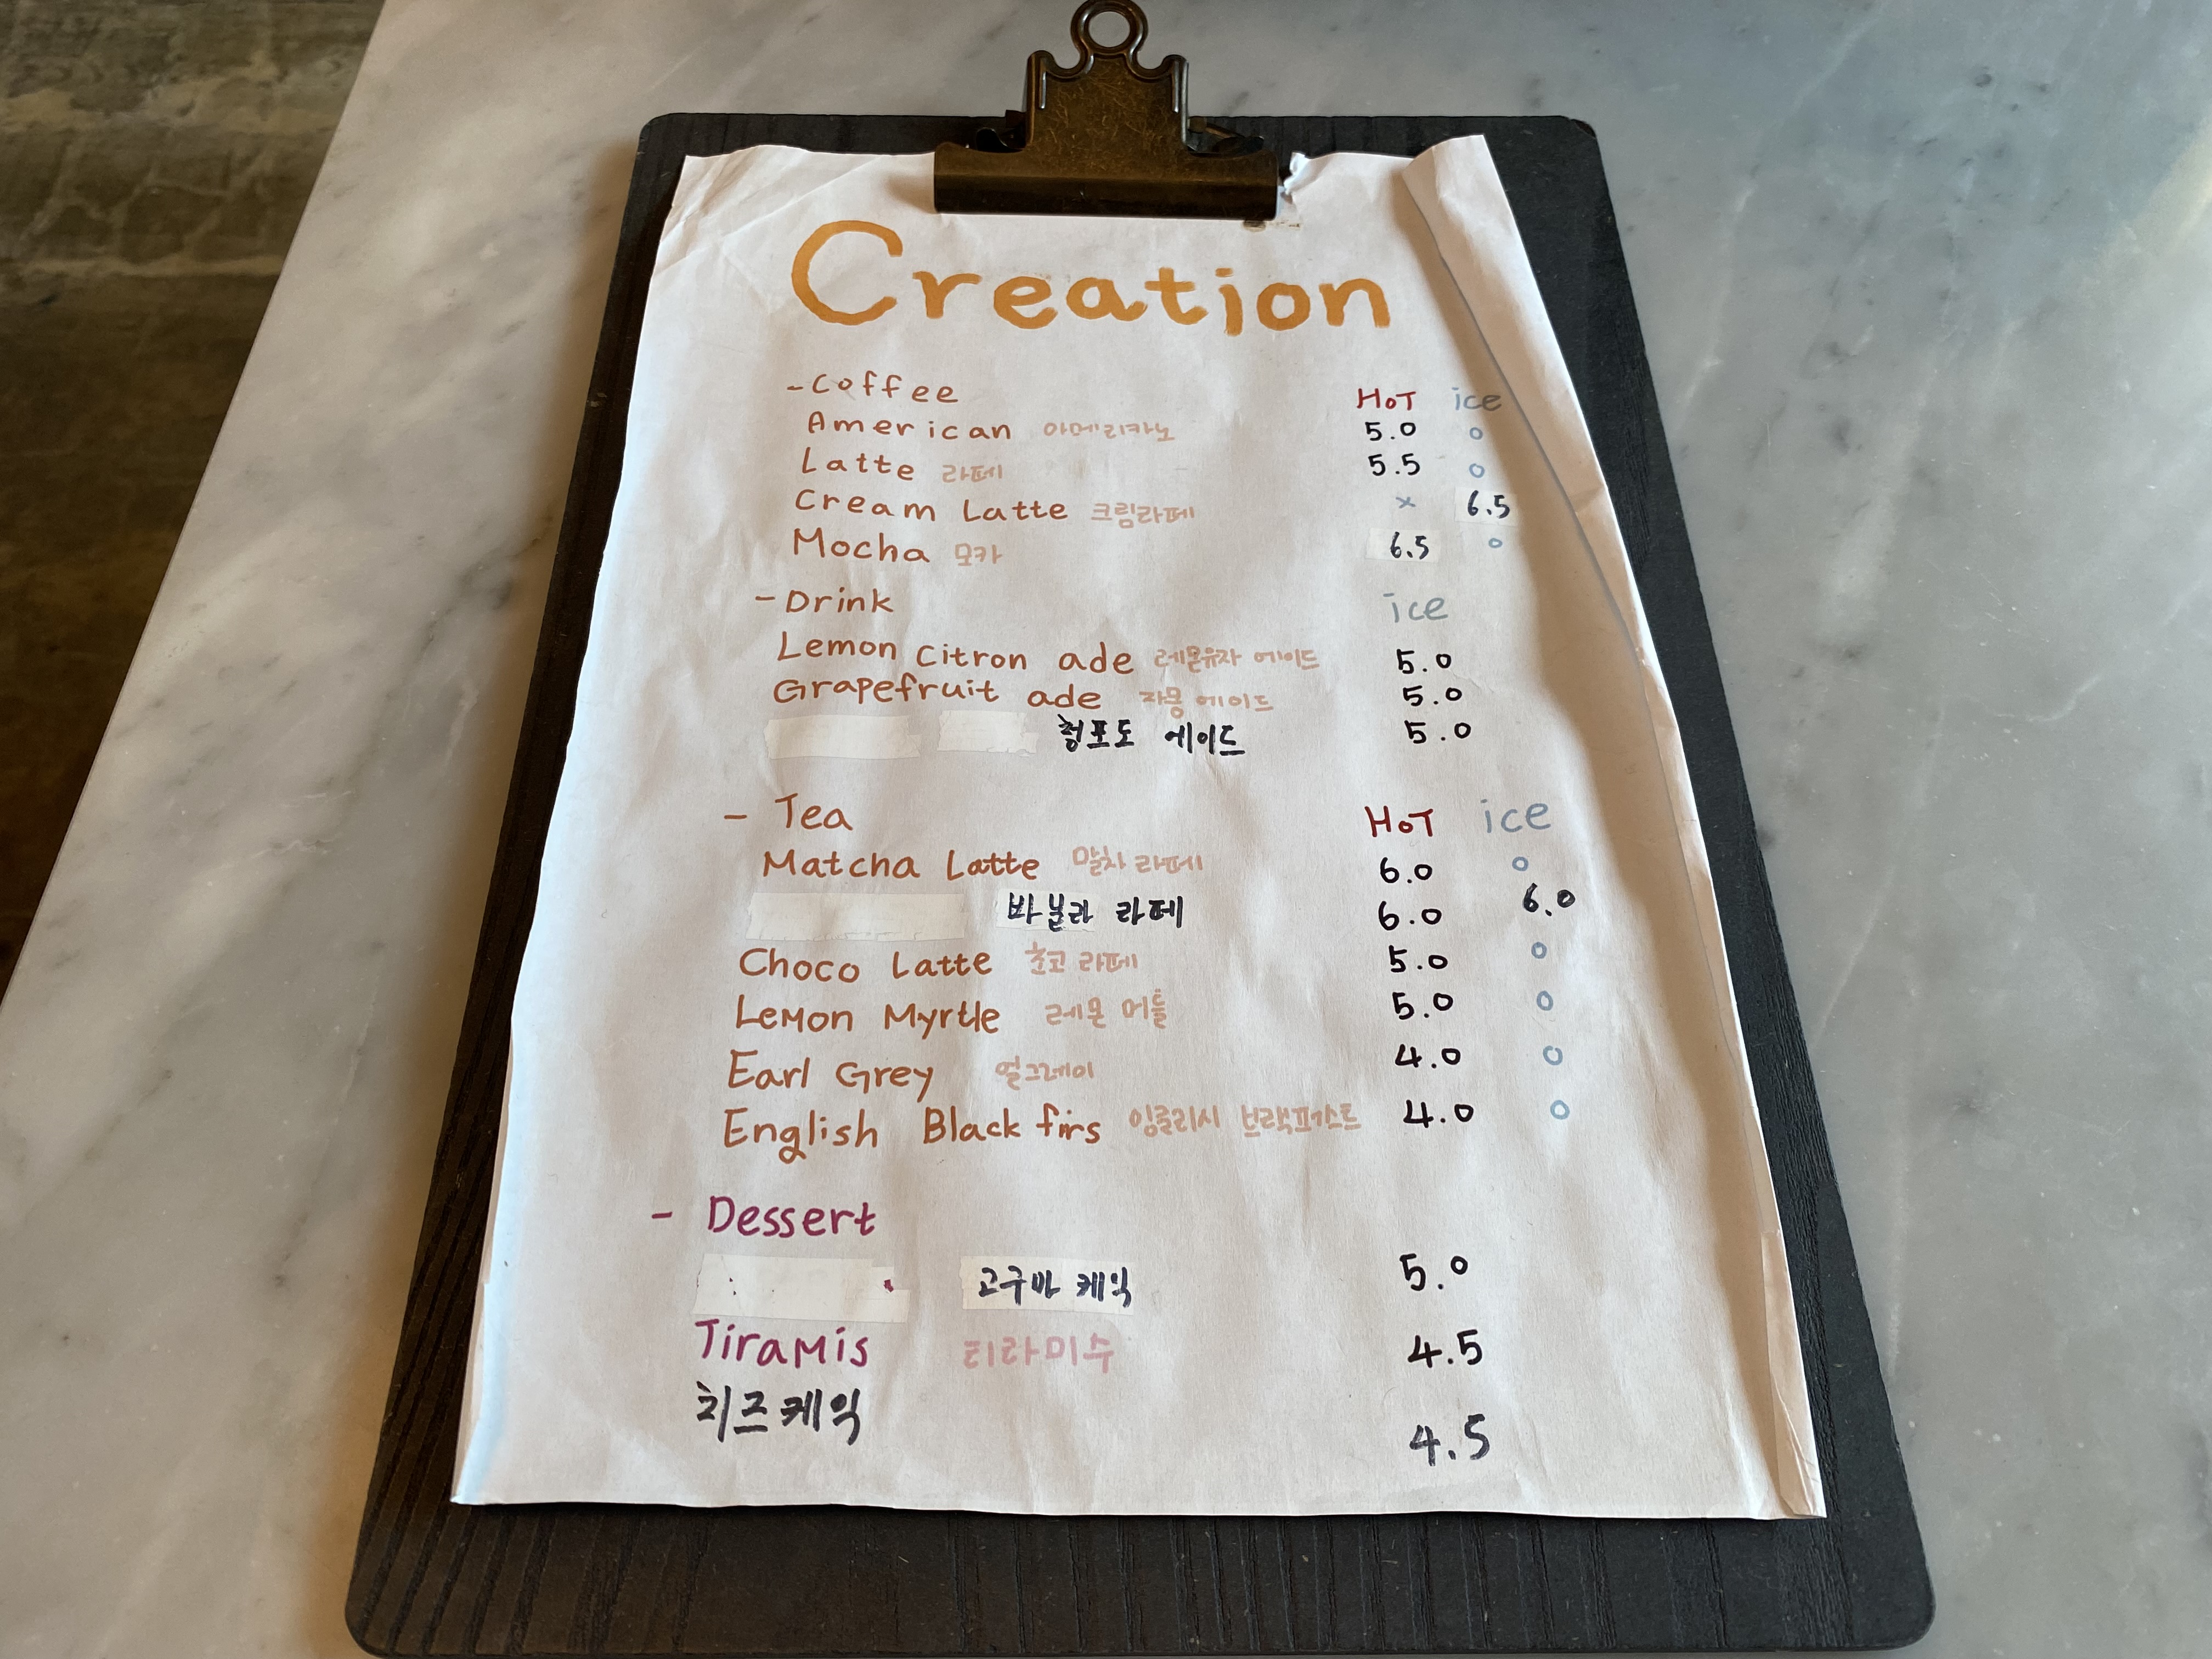 Creation
-Coffee HOT ice
American 아메리카노 5.0 o
Latte 라떼 5.5 o
Cream Latte 크림라떼 x 6.5
Mocha 모카 6.5 o
-Drink ice
Lemon Citron ade 레몬유자 에이드 5.0
Grapefruit ade 자몽 에이드 5.0
청포도 에이드 5.0
- Tea HOT ice
Matcha Latte 말차 라떼 6.0 o
바닐라 라떼 6.0 6.0
Choco Latte 초코 라떼 5.0 o
Lemon Myrtle 레몬 머틀 5.0 o
Earl Grey 얼그레이 4.0 o
English Black firs 잉글리시 브랙퍼스트 4.0 o
- Dessert
고구마 케익 5.0
Tiramis 티라미수 4.5
치즈케익 4.5